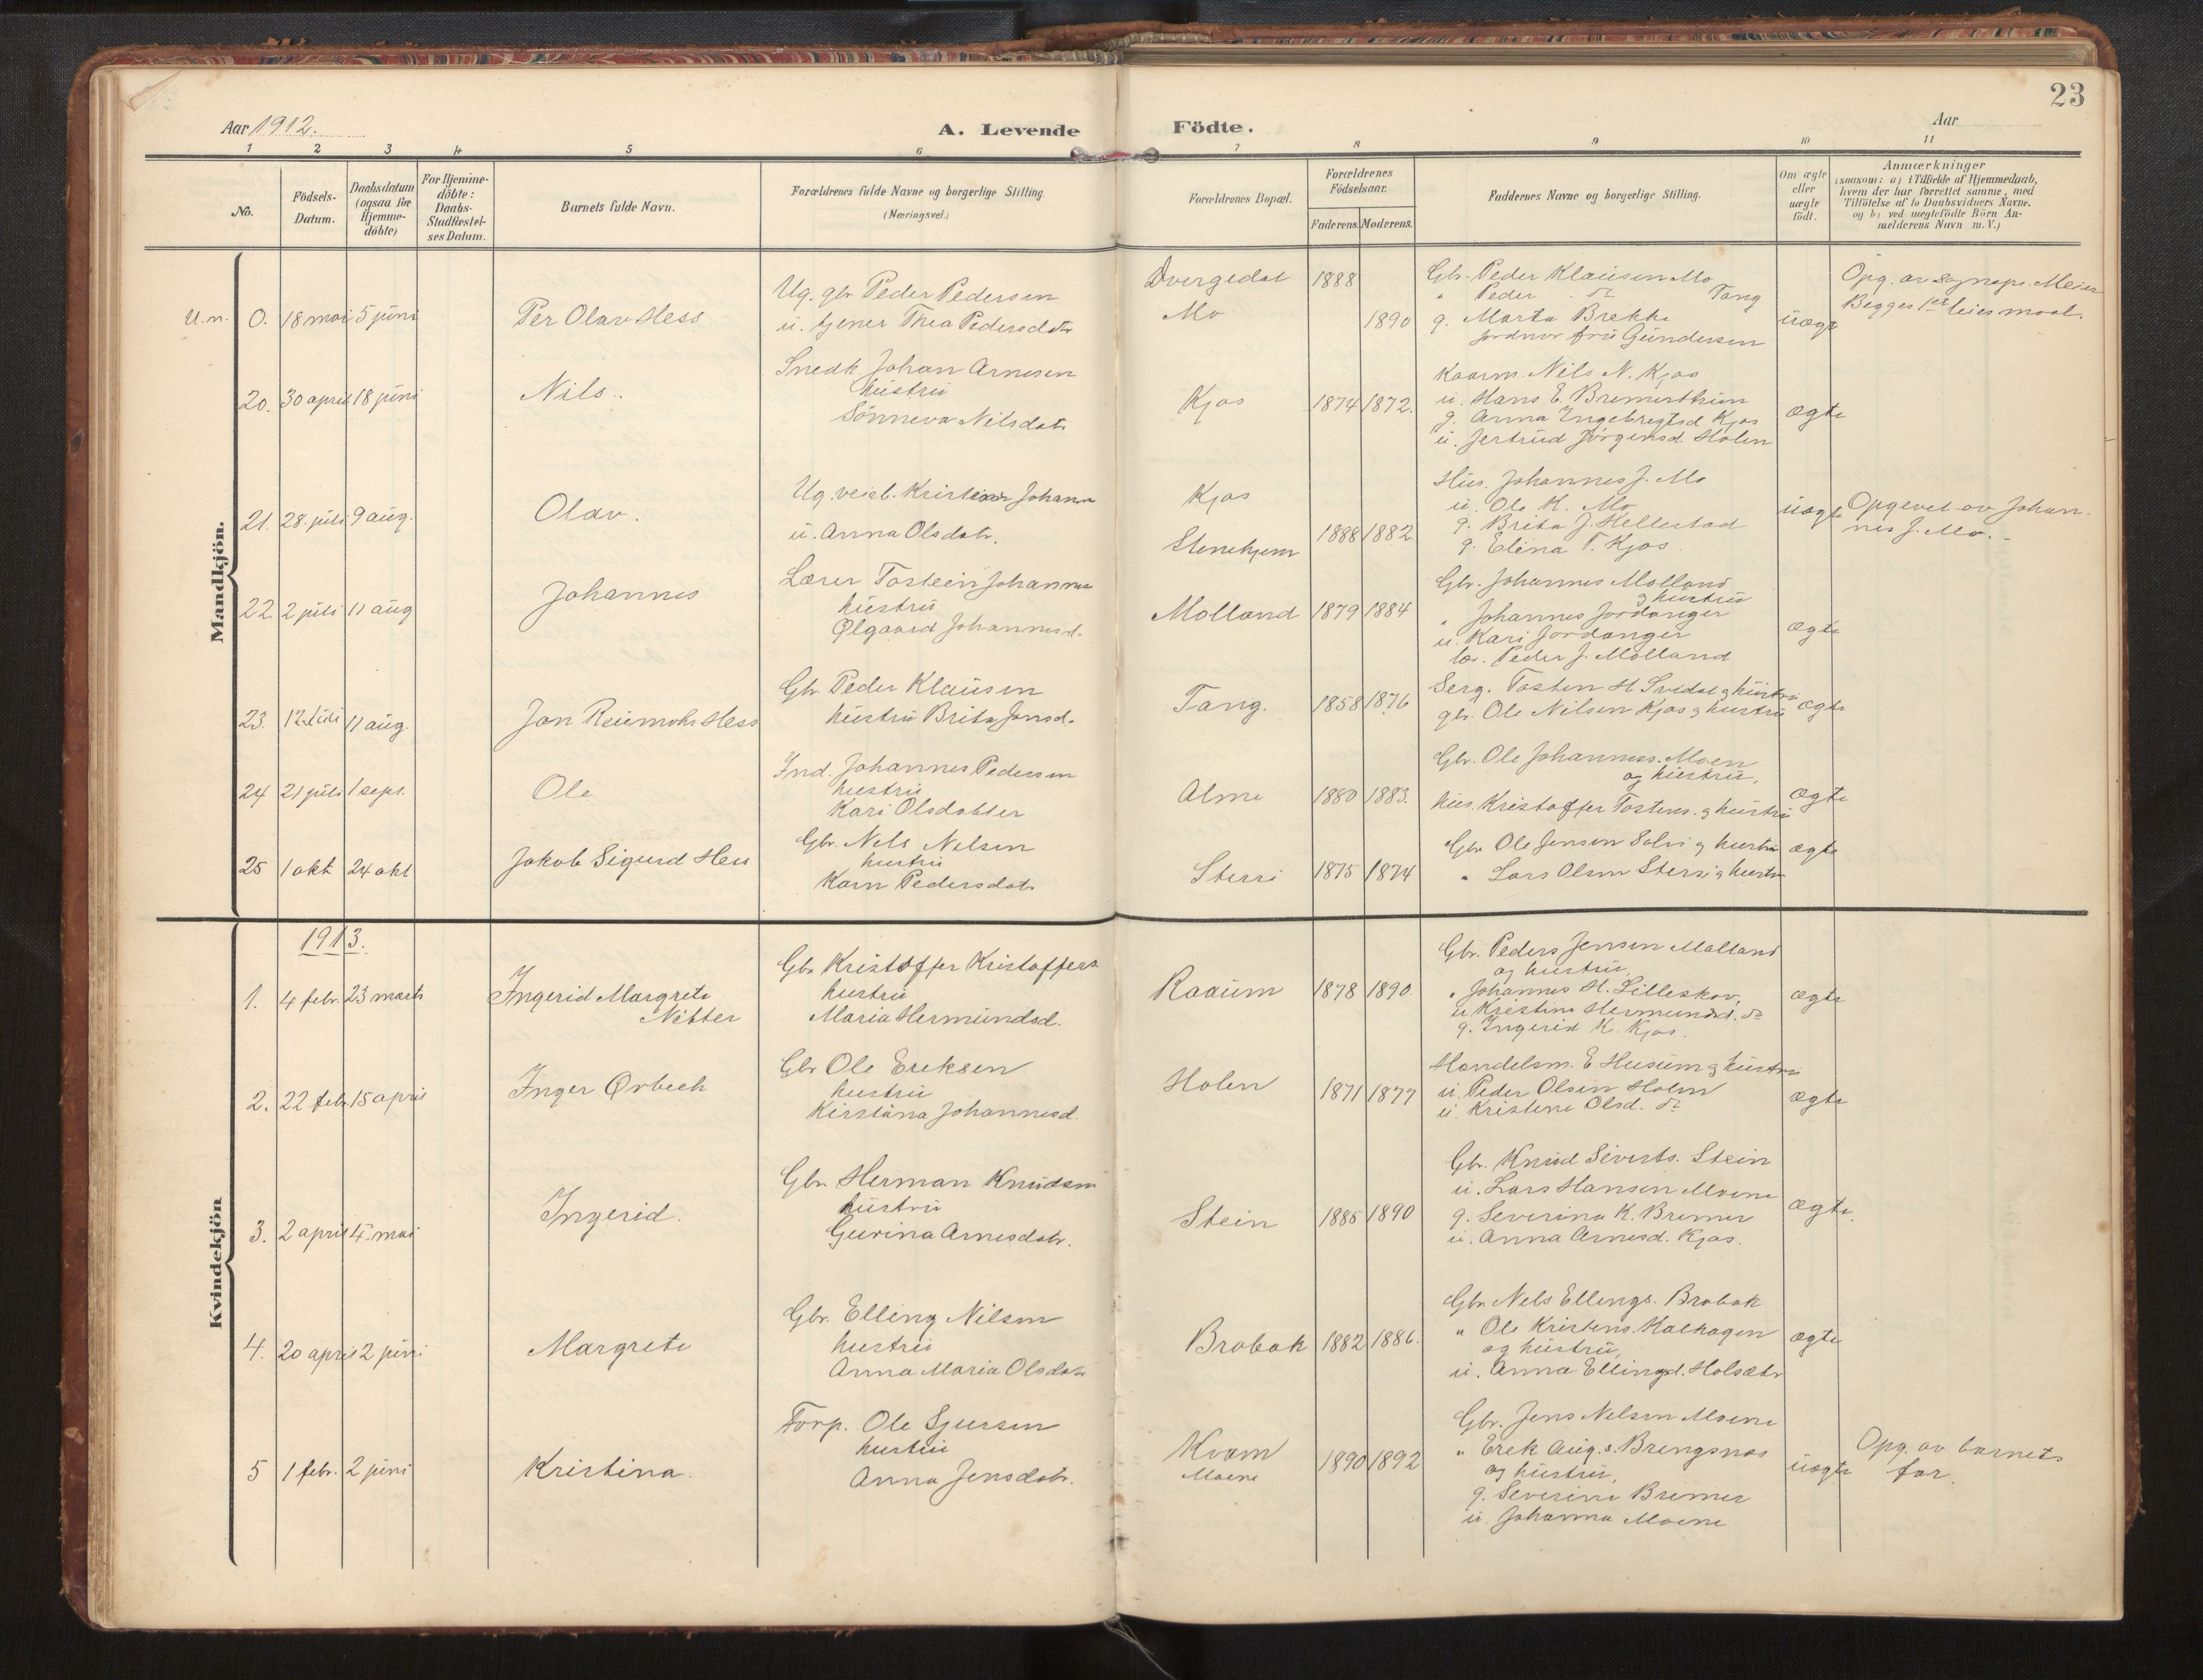 23
Aar 1912.
A. Levende Födte.
Aar
1 2 3 4 5 6 7 8 9 10 11
No.
Födsels-
Datum.
Daabsdatum
(ogsaa for
Hjemme-
döbte)
For Hjemme-
döbte:
Daabs-
Stadfæstel-
ses Datum.
Barnets fulde Navn.
Forældrenes fulde Navne og borgerlige Stilling.
(Næringsvei.)
Forældrenes Bopæl.
Forældrenes
Födselsaar.
Faderens. Moderens.
Faddernes Navne og borgerlige Stilling.
Om ægte
eller
uægte
födt.
Anmærkninger
(saasom: a) i Tilfælde af Hjemmedaab,
hvem der har forrettet samme, med
Tilföielse af to Daabsvidners Navne.
og b) ved uægtefödte Börn An-
melderens Navn m. V.)
Mandkjön.
U.n. 0. 18 mai 5 juni
Per Olav Hess
Ug. gbr Peder Pedersen
u. tjener Thea Pedersdatr
Dvergedal
Mo
1888
1890
Gbr. Peder Klausen Mo
" Peder do Tang
g. Marta Brekke
jordmor fru Gundersen
uægte
Opg. av sognepr. Meier
Begges 1ste leiesmaal.
20. 30 april 18 juni
Nils.
Snedk. Johan Arnesen
hustru
Sönneva Nilsdatr
Kjos
1874 1872.
Kaarm. Nils N. Kjos
u. Hans E. Bremerthun
g. Anna Ingebregtsd Kjos
u. Jertrud Jörgensd. Holen
ægte
21. 28. juli 9 aug.
Olav.
Ug. veiarb. Kristian Johansen
u. Anna Olsdatr.
Kjos
Stenehjem
1888 1882
Hus. Johannes J. Mo
u. Ole K. Mo
g. Brita J. Hellestad
g. Elina T. Kjos.
uægte
Opgevet av Johan-
nes J. Mo.
22. 2 juli 11 aug
Johannes
Lærer Tostein Johannes
hustru
Olgaard Johannesd.
Molland
1879 1884
Gbr. Johannes Molland
g hustru
" Johannes Jordanger
u. Kari Jordanger
lær. Peder J. Molland
ægte
23. 12 juli 11 aug.
Jon Reumohr Hess
Gbr. Peder Klausen
hustru Brita Jonsd.
Tang.
1858 1876
Serg. Tosten H. Svidal g hustru
gbr. Ole Nilsen Kjos g hustru
ægte
24 21 juli 1 sept.
Ole
Ind. Johannes Pedersen
hustru
Kari Olsdatter
Alme
1880 1883.
Gbr. Ole Johanness. Moen
og hustru,
hus. Kristoffer Tostens. g hustru
ægte
25 1 okt 24 okt
Jakob Sigurd Hess
Gbr. Nils Nilsen
hustru
Karn Pedersdatr
Sterri
1875 1874
Gbr Ole Jensen Solvi g hustru
" Lars Olsen Sterri g hustru
ægte
Kvindekjön
1913.
1. 4 febr. 23 marts
Ingerid Margrete
Nitter
Gbr Kristoffer Kristoffers.
hustru
Maria Hermundsd.
Raaum
1878 1890.
Gbr. Peders Jensen Molland
og hustru,
" Johannes H. Lilleskov,
u. Kristine Hermundsd. do
g. Ingerid K. Kjos.
ægte
2. 22 febr 15 april
Inger Ørbech
Gbr Ole Ereksen
hustru
Kirstina Johannesd.
Holen
1871 1877
Handelsm. E Husum g hustru
u. Peder Olsen Holen
u. Kristene Olsd. do
ægte
3. 2 april 4 mai
Ingerid.
Gbr Herman Knudsen
hustru
Gurina Arnesdatr.
Stein
1885 1890
Gbr. Knud Siverts. Stein
u. Lars Hansen Moene
g. Severina K. Bremer
u. Anna Arnesd. Kjos.
ægte.
4. 20 april 2 juni
Margrete
Gbr. Elling Nilsen
hustru
Anna Maria Olsdatr
Brobak
1882 1886.
Gbr. Nils Ellings. Brobak
" Ole Kristens. Kalhagen
og hustru,
u. Anna Ellingsd. Holsæter
ægte
5 1 febr. 2 juni
Kristina.
Forp. Ole Sjursen
hustru
Anna Jensdatr.
Kvam
Moene
1890 1892
Gbr. Jens Nilsen Moene
" Erek Aug.s. Brengsnæs
og hustru,
g. Severine Bremer
u. Johanna Moene
uægte
Opg. av barnets
far.